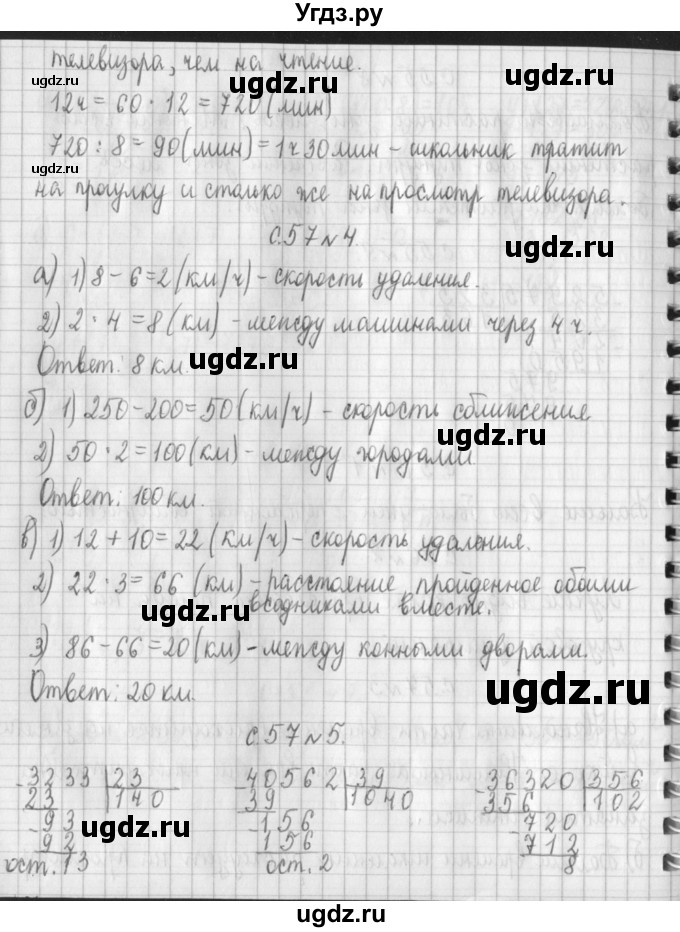 Угдз.ру
телевизора, чем на чтение.
ugdz.ru
ugdz.ru
ugdz.ru
12ч = 60 · 12 = 720 (мин)
ugdz.ru
720 : 8 = 90 (мин) = 1ч 30мин – школьник тратит
ugdz.ru
на прогулку и столько же на просмотр телевизора.
ugdz.ru
с.57 №4.
а) 1) 8 – 6 = 2 (км/ч) – скорость удаления.
2) 2 · 4 = 8 (км) – между машинами через 4 ч.
ugdz.ru
Ответ: 8 км.
ugdz.ru
б) 1) 250 – 200 = 50 (км/ч) – скорость сближения
ugdz.ru
2) 50 · 2 = 100 (км) – между городами
Ответ: 100 км.
ugdz.ru
в) 1) 12 + 10 = 22 (км/ч) – скорость удаления.
2) 22 · 3 = 66 (км) – расстояние, пройденное обоими
всадниками вместе.
ugdz.ru
3) 86 – 66 = 20 (км) – между конными дворами.
Ответ: 20 км.
ugdz.ru
с.57 №5.
ugdz.ru
-3233 | 23
23 140
-93
92
ост. 13
40562 | 39
39 1040
-156
156
ост. 2
-36320 | 356
356 102
-720
712
8
ugdz.ru
ugdz.ru
ugdz.ru
ugdz.ru